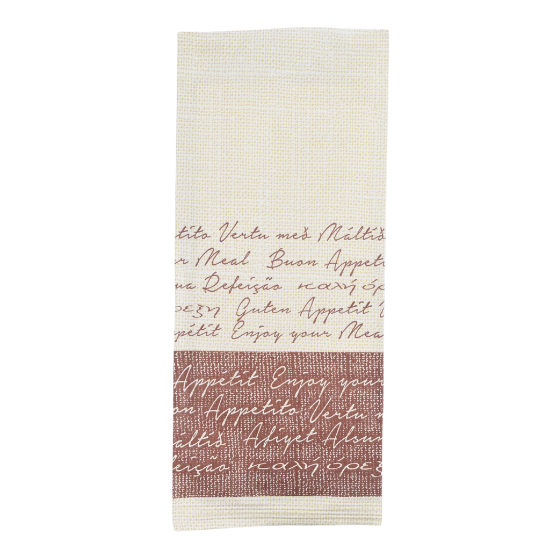 tito Vertu með Máltíð
r Meal Buon Appeti
ua Refeição καλή όρε
ρεξη Guten Appetit
pétit Enjoy your Mea
Appétit Enjoy your
on Appetito Vertu m
áltíð Afiyet Alsun
feição καλή όρεξ